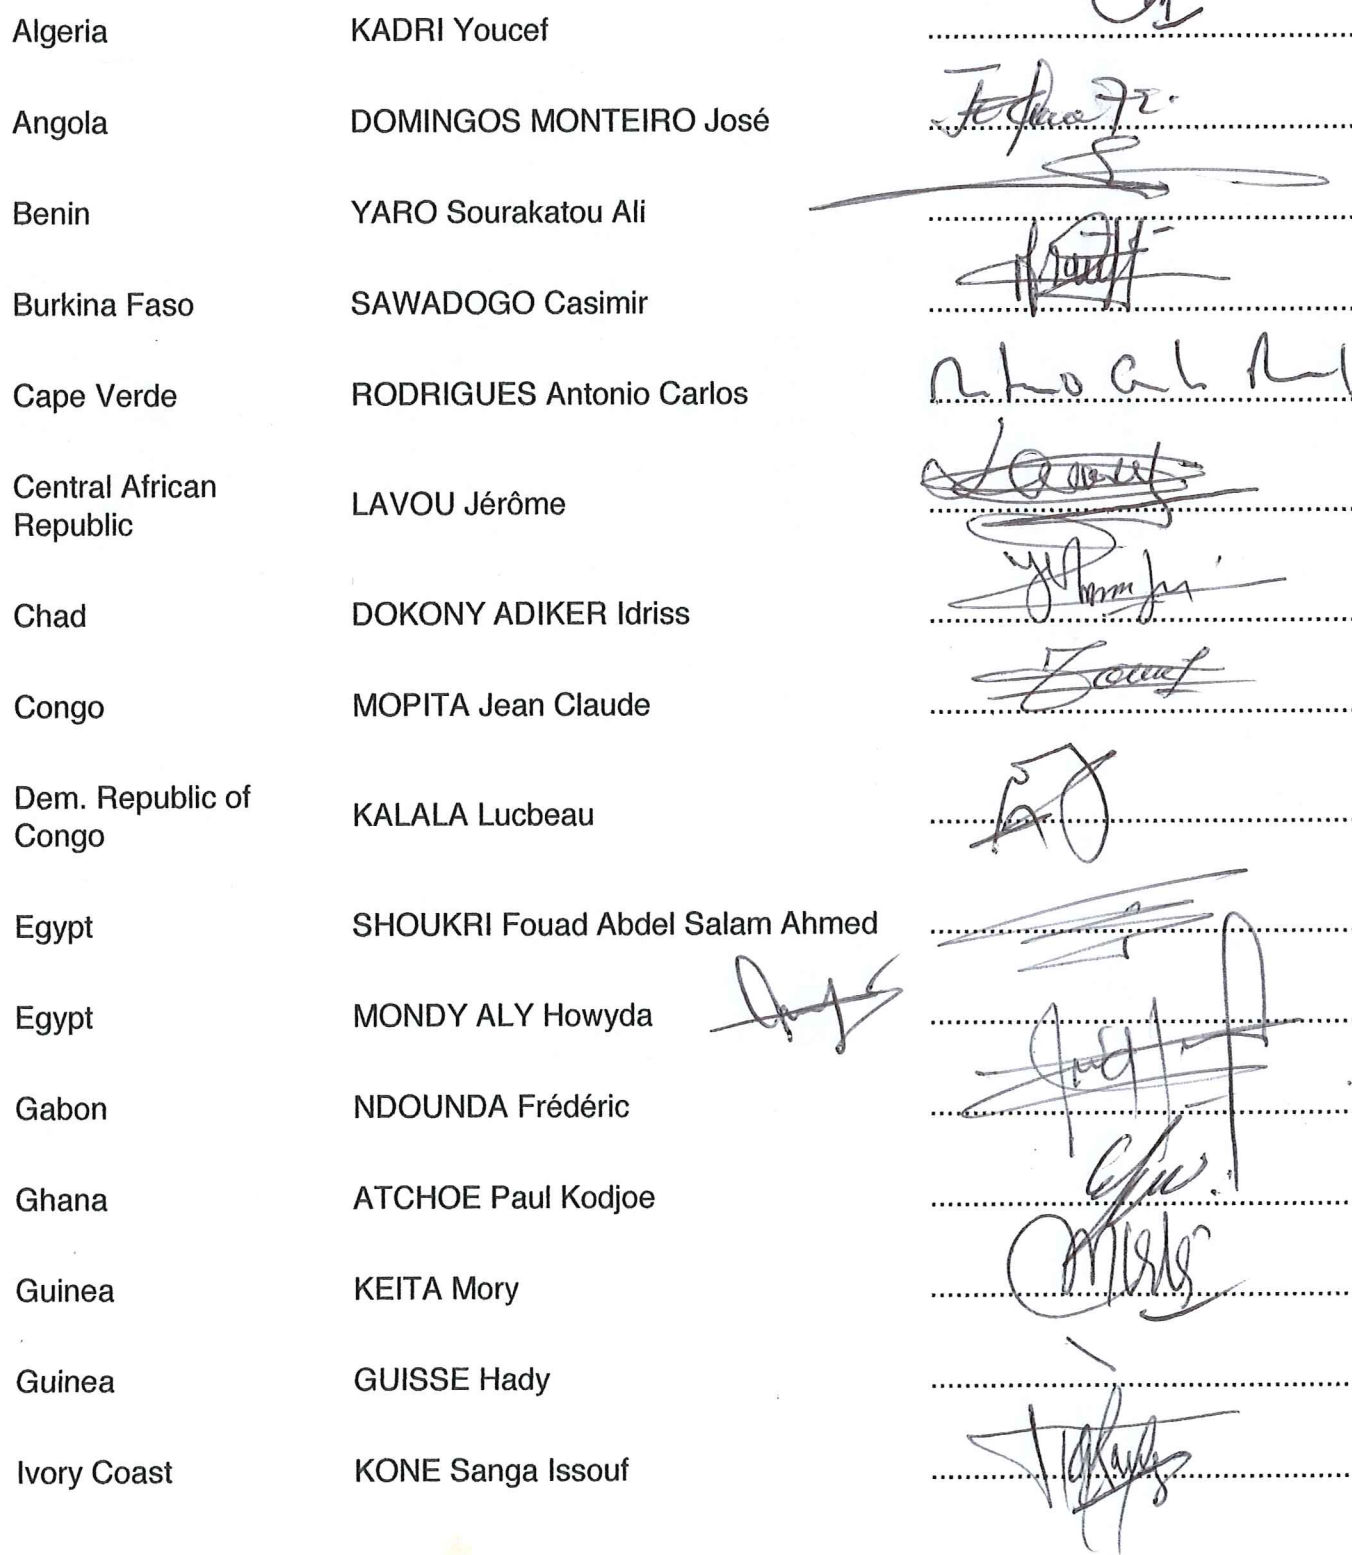 Algeria KADRI Youcef
Angola DOMINGOS MONTEIRO José
Benin YARO Sourakatou Ali
Burkina Faso SAWADOGO Casimir
Cape Verde RODRIGUES Antonio Carlos
Central African
Republic LAVOU Jérôme
Chad DOKONY ADIKER Idriss
Congo MOPITA Jean Claude
Dem. Republic of
Congo KALALA Lucbeau
Egypt SHOUKRI Fouad Abdel Salam Ahmed
Egypt MONDY ALY Howyda
Gabon NDOUNDA Frédéric
Ghana ATCHOE Paul Kodjoe
Guinea KEITA Mory
Guinea GUISSE Hady
Ivory Coast KONE Sanga Issouf